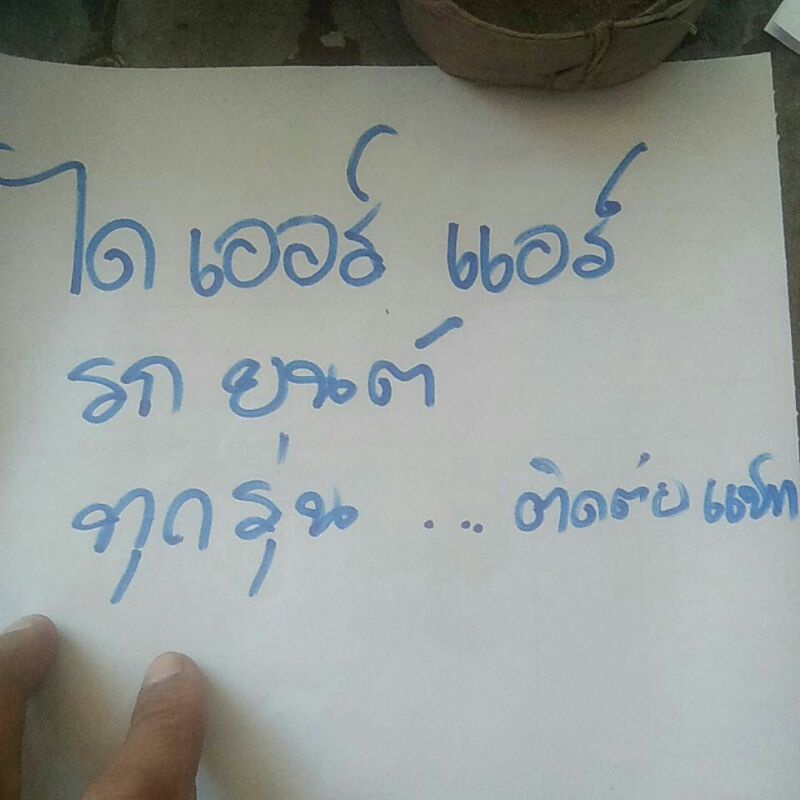 ไดเออร์ แอร์
รถ ยนต์
ทุกรุ่น ... ติดต่อ แชท